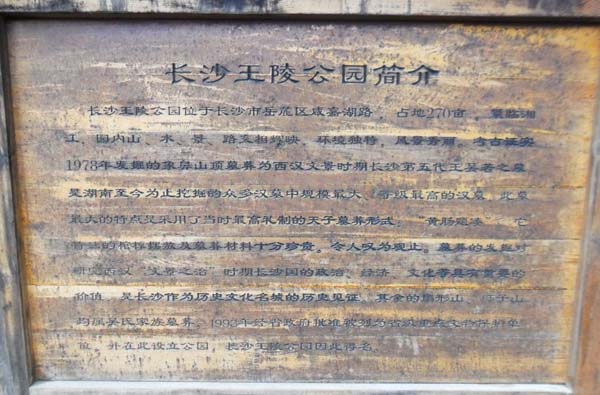 长沙王陵公园简介
长沙王陵公园位于长沙市岳麓区咸嘉湖路,占地270亩,紧临湘
江,园内山、水、景、路交相辉映,环境独特,风景秀丽,考古证实
1978年发掘的象鼻山顶墓葬为西汉文景时期长沙第五代王吴著之墓
是湖南至今为止挖掘的众多汉墓中规模最大、等级最高的汉墓,此墓
最大的特点是采用了当时最高礼制的天子墓葬形式,“黄肠题凑”,它
的棺椁摆放及墓葬材料十分珍贵。令人叹为观止。墓葬的发掘对
研究西汉“文景之治”时期长沙国的政治、经济、文化等具有重要的
价值,是长沙作为历史文化名城的历史见证,其余的扇形山、山
均属吴氏家族墓葬。1993年经省政府批准被列为省级重点文物保护单
位,并在此设立公园,长沙王陵公园因此得名。